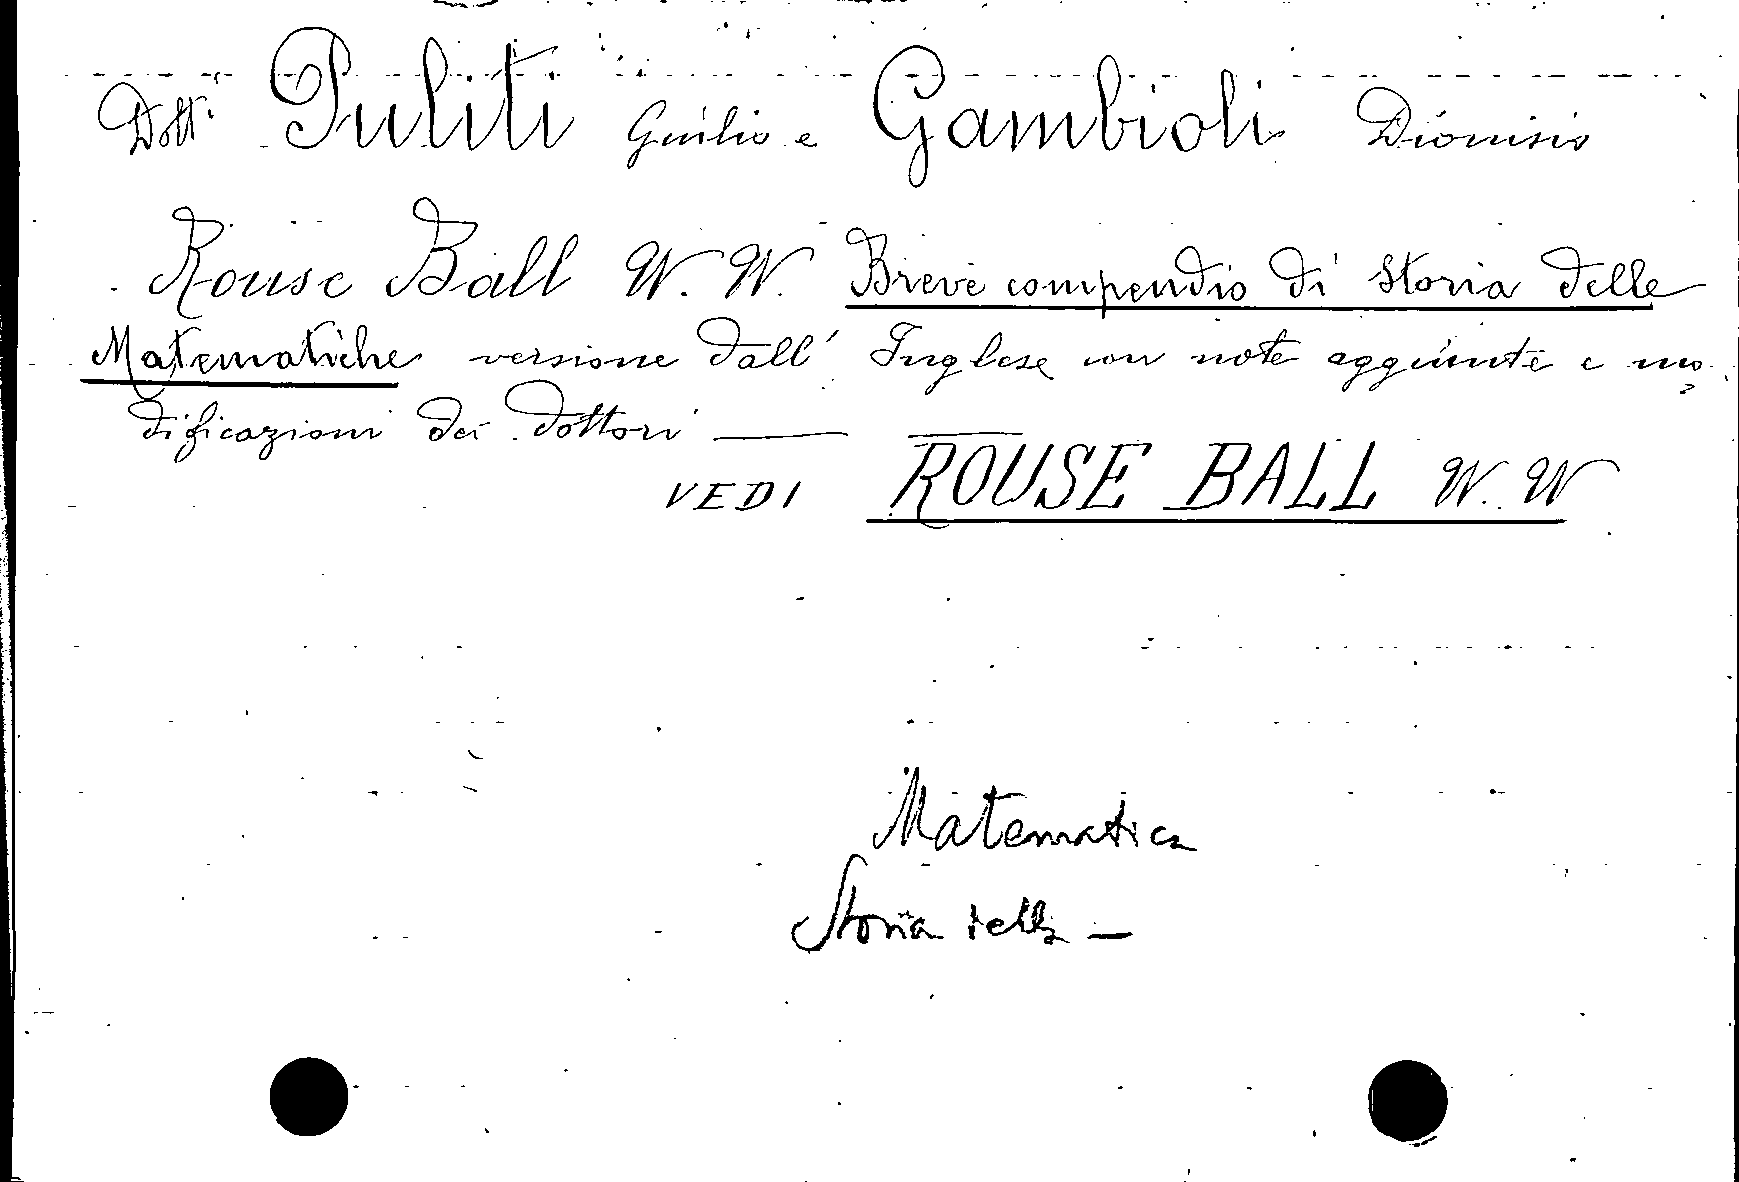 Dott.i Puliti Giulio e Gambioli Dionisio
Rouse Ball W. W. Breve compendio di Storia delle
Matematiche versione dall' Inglese con note aggiunte e mo
dificazioni dei dottori — —
VEDI ROUSE BALL W. W
Matematica
Storia della —